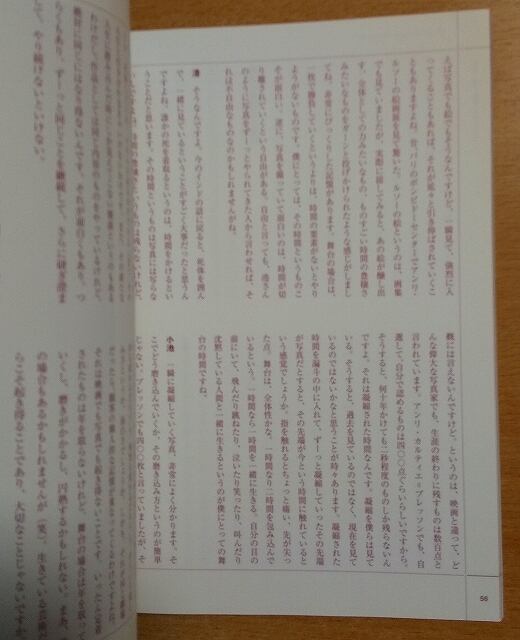 えば写真でも絵でもそうなんですけど、一瞬見て、強烈に入
ってくることもあれば、それが延々と引き伸ばされていくこ
ともありますよね。昔、パリのポンピドゥーセンターでアンリ・
ルソーの絵画展を見て驚いた。ルソーの絵というのは、画集
でも見ていましたが、実際に接してみると、あの絵が醸し出
す、全体としての力みたいなもの、ものすごい時間の豊穣さ
みたいなものをガーンと投げかけられたような感じがしまし
てね。非常にびっくりした記憶があります。舞台の場合は、
一枚で勝負していくというよりは、時間の要素がないとやり
ようがないものです。僕にとっては、その時間というものこ
そが面白い。逆に、写真を撮っていて面白いのは、時間が切
り離されていくという自由がある。自由と言っても、港さん
のように写真をずーっとやられてきた人から言わせれば、そ
れは不自由なものなのかもしれませんがね。
港　そうなんですよ。今のインドの話に戻ると、死体を囲ん
で、一緒に見ているということがすごく大事だったと思うん
ですよね。誰かの死を看取るというのは、時間をかけるとい
うことだと思います。その時間というものは写真には写らな
概には言えないんですけど。というのは、映画と違って、ど
んな偉大な写真家でも、生涯の終わりに残すものは数百点と
言われています。アンリ・カルティエ＝ブレッソンでも、自
選して、自分で認めるものは四〇〇点ぐらいらしいですから。
そうすると、何十年かけても二秒程度のものしか残らないん
ですよ。それは凝縮された時間なんです。凝縮を僕らは見て
いる。そうすると、過去を見ているのではなく、現在を見て
いるのではないかなと思うことが時々あります。凝縮された
時間を漏斗の中に入れて、ずーっと凝縮していったその先端
が写真だとすると、その先端が今という時間に触れていると
いう感覚でしょうか。指を触れるとちょっと痛い、先が尖っ
た点。舞台は、全体性かな。一時間なり二時間を包み込んで
いるという。一時間なら一時間を一緒に生きる。自分の目の
前にいて、飛んだり跳ねたり、泣いたり笑ったり、叫んだり
沈黙している人間と一緒に生きるというのが僕にとっての舞
台の時間ですね。
小池　一瞬に凝縮していく写真、非常によく分かります。そ
こでどう磨き込んでいくか。その磨き込み方というのが簡単
じゃない。ブレッソンでも四〇〇枚と言っていましたが、そ
56
絶対に同じにはなり得ないんです。それが面白くもあり、つ
らくもあり、ずーっと同じことを継続して、さらに研ぎ澄ま
して、やり続けないといけない。
されたものは年を取らないけれど、舞台の場合は年を取って
いくし、磨きがかかるし、円熟するかもしれない。また、
の場合もあるかもしれませんが（笑）。生きている芸術だか
らこそ起き得ることであり、大切なことじゃないですか